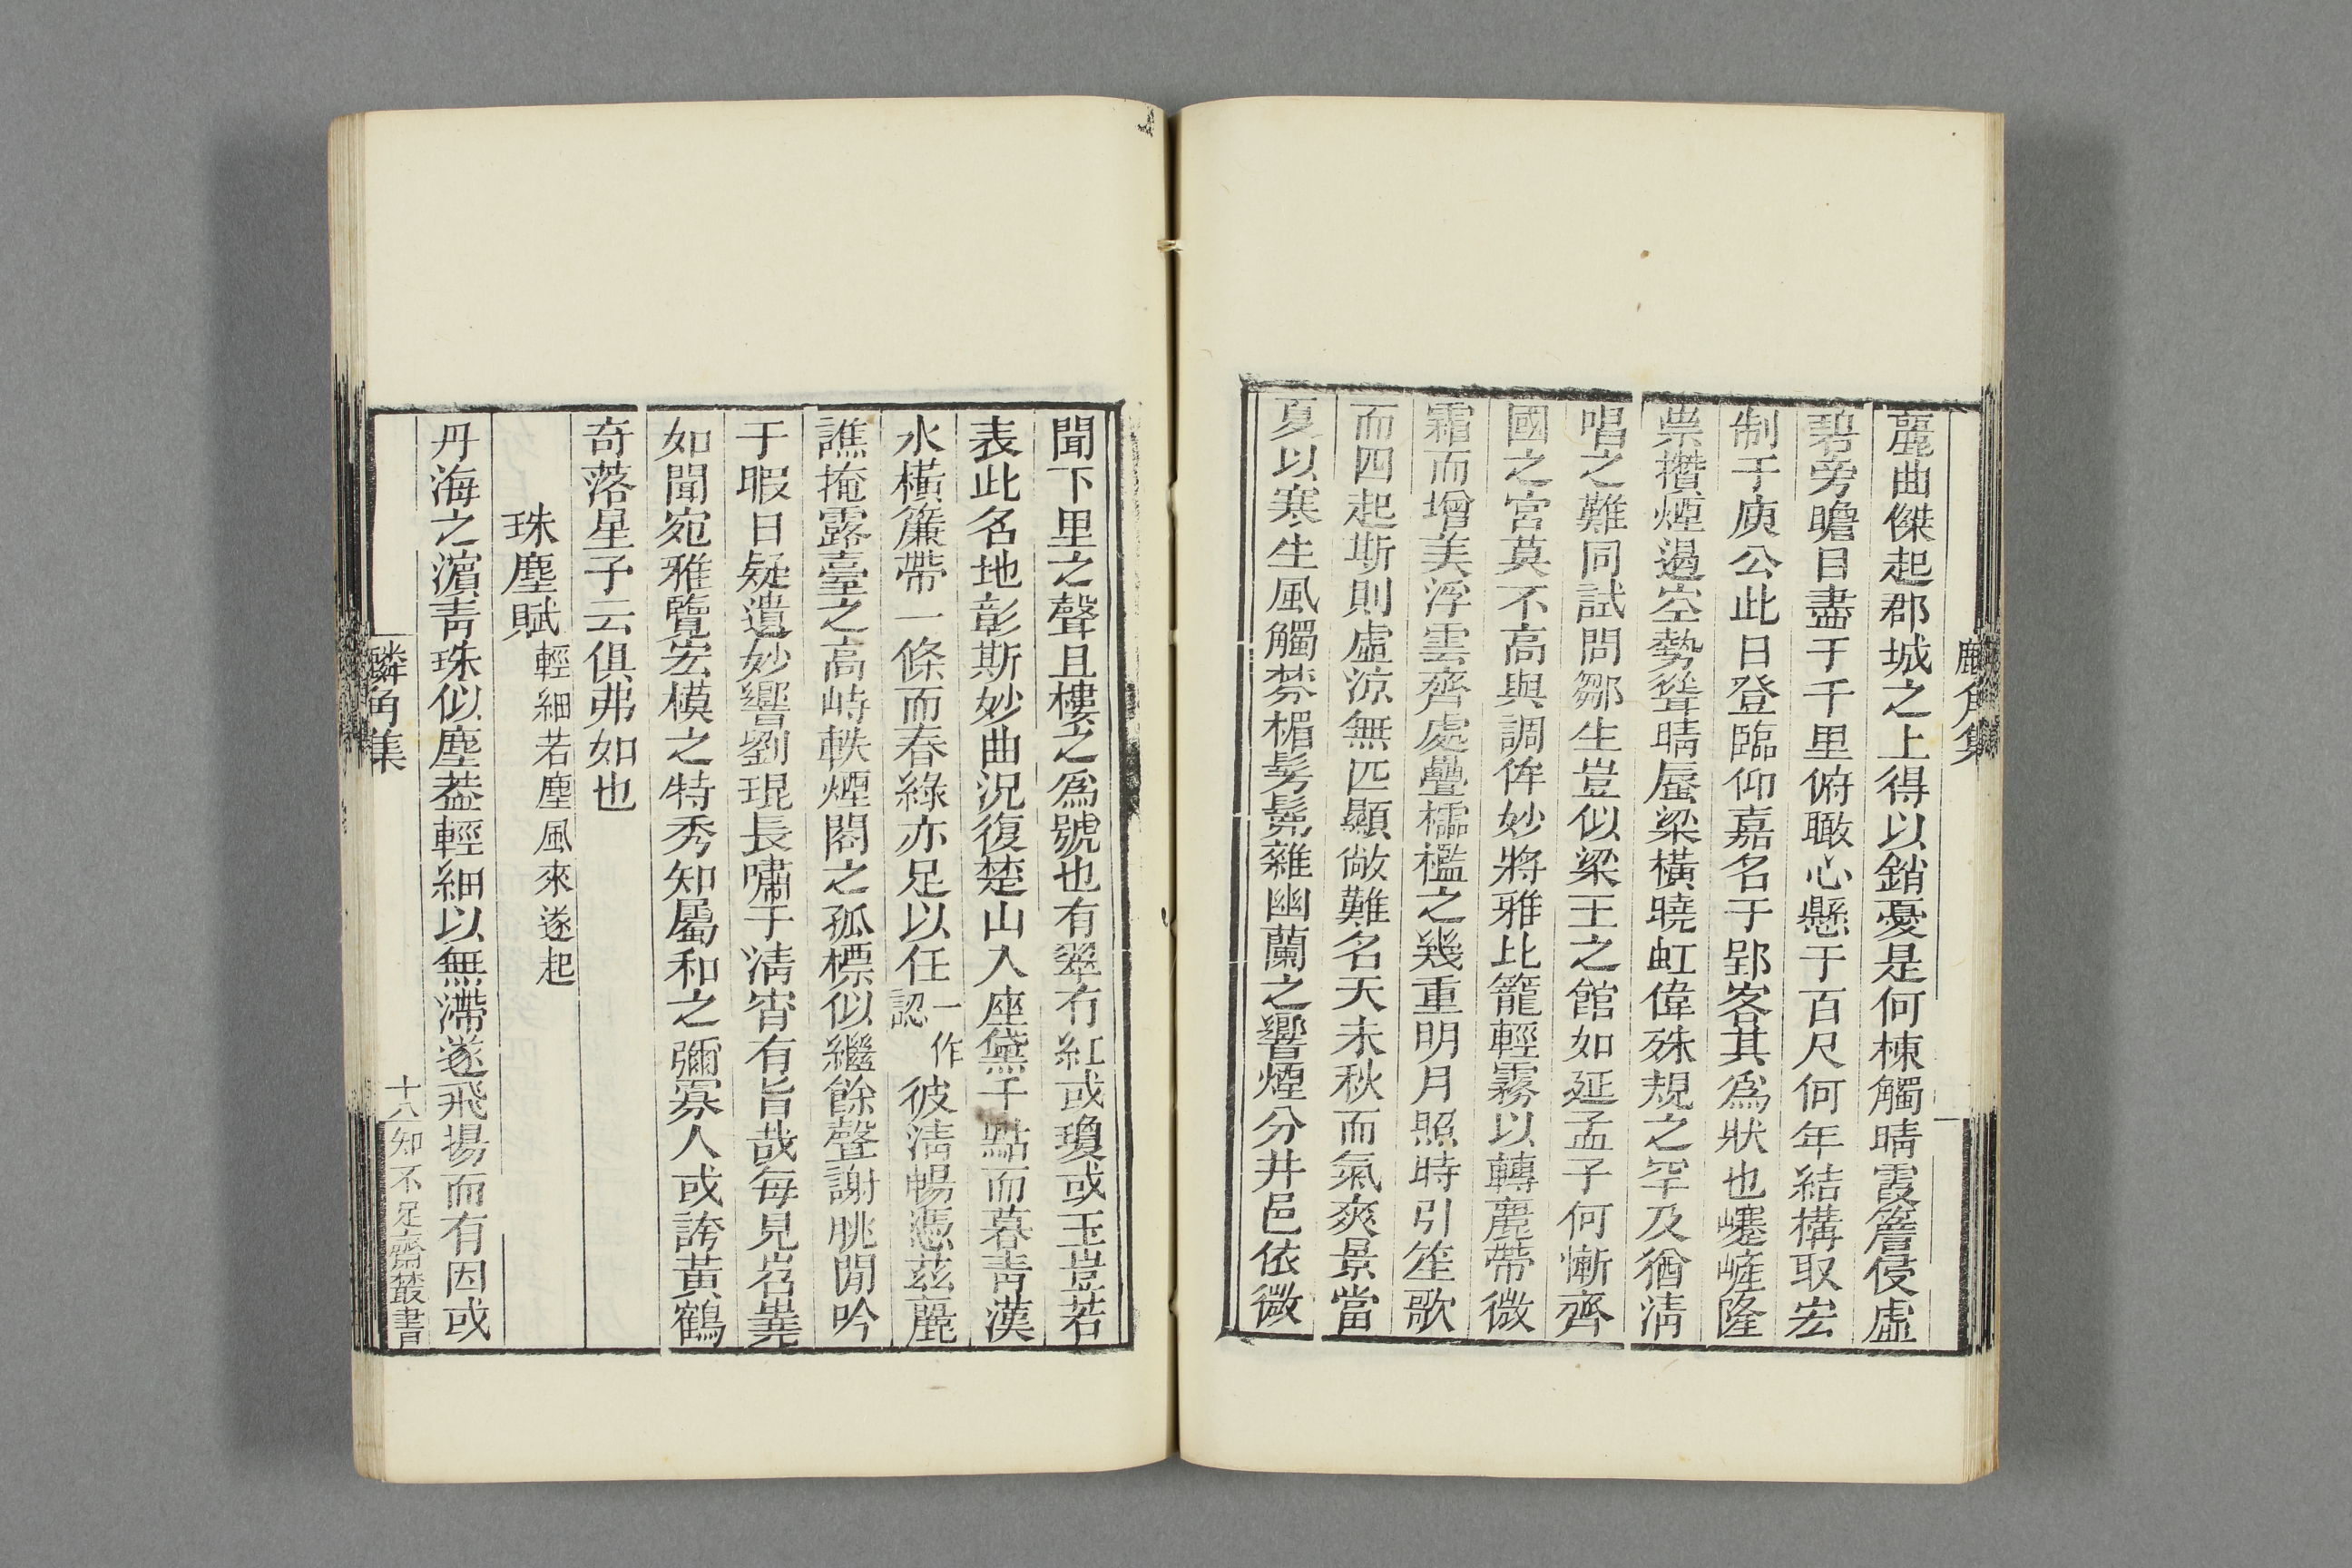 麗曲傑起郡城之上得以銷憂是何棟觸晴霞簷侵虛
碧旁瞻目盡于千里俯瞰心懸于百尺何年結構取宏
制于庾公此日登臨仰嘉名于郢客其爲狀也𡾰嵼隆
攢煙遏空勢聳晴蜃梁橫曉虹偉殊規之罕及猶淸
唱之難同試問鄒生豈似梁王之館如延孟子何慚齊
國之宮莫不高與調侔妙將雅比籠輕霧以轉麗帶微
霜而增美浮雲齊處疊櫺檻之幾重明月照時引笙歌
而四起斯則虛涼無匹顯敞難名天未秋而氣爽景當
夏以寒生風觸棼楣髣髴雜幽蘭之響煙分井邑依微
聞下里之聲且樓之爲號也有翠有紅或瓊或玉豈若
表此名地彰斯妙曲況復楚山入座黛千點而暮靑漢
水橫簾帶一條而春綠亦足以任一作認彼淸暢憑茲麗
譙掩露臺之高峙軼煙閣之孤標似繼餘聲謝朓閒吟
于暇日疑遺妙響劉琨長嘯于淸宵有旨哉每見岧嶤
如聞宛雅覽宏模之特秀知屬和之彌寡人或誇黃鶴
奇落星子云俱弗如也
珠塵賦輕細若塵風來遂起
丹海之濵靑珠似塵葢輕細以無滯遂飛揚而有因或
麟角集
十八
知不足齋叢書